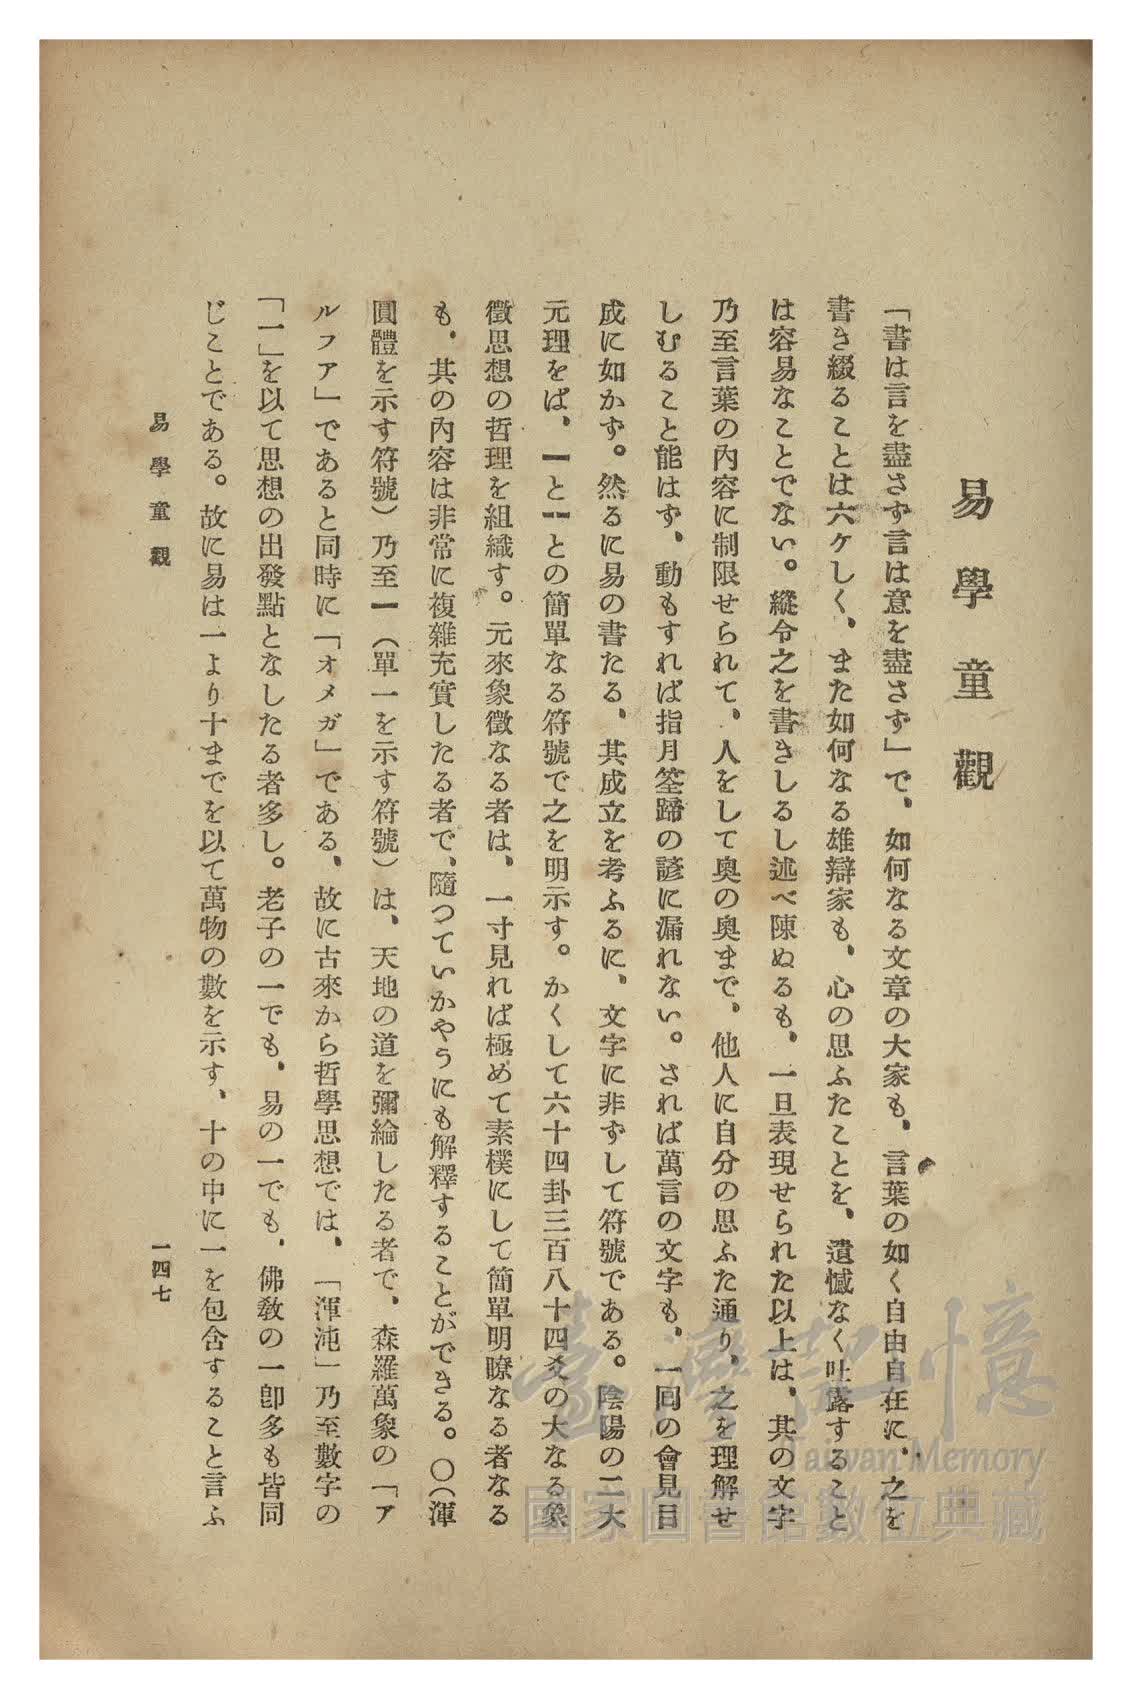 易學童觀
「書は言を盡さず言は意を盡さず」で、如何なる文章の大家も、言葉の如く自由自在に、之を
書き綴ることは六ケしく、また如何なる雄辯家も、心の思ふたことを、遺憾なく吐露すること
は容易なことでない。縱令之を書きしるし述べ陳ぬるも、一旦表現せられた以上は、其の文字
乃至言葉の內容に制限せられて、人をして奧の奧まで、他人に自分の思ふた通り、之を理解せ
しむること能はず、動もすれば指月筌蹄の諺に漏れない。されば萬言の文字も、一回の會見目
成に如かず。然るに易の書たる、其成立を考ふるに、文字に非ずして符號である。陰陽の二大
元理をば、⚊と⚋との簡單なる符號で之を明示す。かくして六十四卦三百八十四爻の大なる象
徵思想の哲理を組織す。元來象徵なる者は、一寸見れば極めて素樸にして簡單明瞭なる者なる
も、其の內容は非常に複雜充實したる者で、隨つていかやうにも解釋することができる。〇(渾
圓體を示す符號)乃至⚊(單一を示す符號)は、天地の道を彌綸したる者で、森羅萬象の「ア
ルフア」であると同時に「オメガ」である、故に古來から哲學思想では、「渾沌」乃至數字の
「一」を以て思想の出發點となしたる者多し。老子の一でも、易の一でも、佛敎の一卽多も皆同
じことである。故に易は一より十までを以て萬物の數を示す、十の中に一を包含すること言ふ
易學童觀
一四七
臺灣記憶
Taiwan Memory
國家圖書館數位典藏